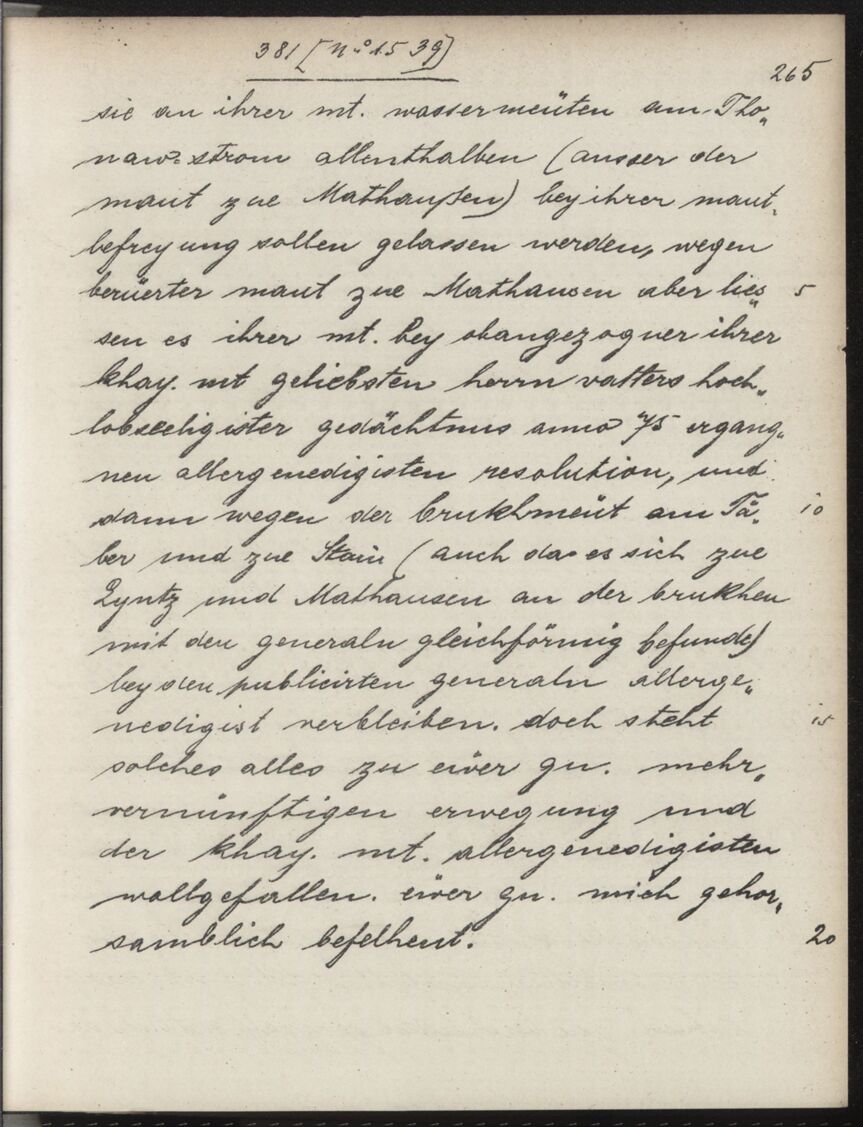 381 [Nº 1539]
265
sie an ihrer mt. wassermeüten am Tho„
naw=strom allenthalben (ausser der
maut zue Mathaußen) bey ihrer maut„
befreyung sollen gelassen werden, wegen
berüerter maut zue Mathausen aber lies„ 5
sen es ihrer mt. bey obangezogner ihrer
khay. mt geliebsten herrn vatters hoch„
lobseeligister gedächtnus anno 75 ergang„
nen allergenedigisten resolution, und
dann wegen der brukhmeüt am Tä„ 10
ber und zue Stain (auch da es sich zue
Lyntz und Mathausen an der brukhen
mit den generaln gleichförmig befunde)
bey den publicirten generaln allerge„
nedigist verbleiben. doch steht 15
solches alles zu eiver gn. mehr„
vernünftigen erwegung und
der khay. mt. allergenedigisten
wollgefallen. eiver gn. mich gehor„
samblich befelhent. 20